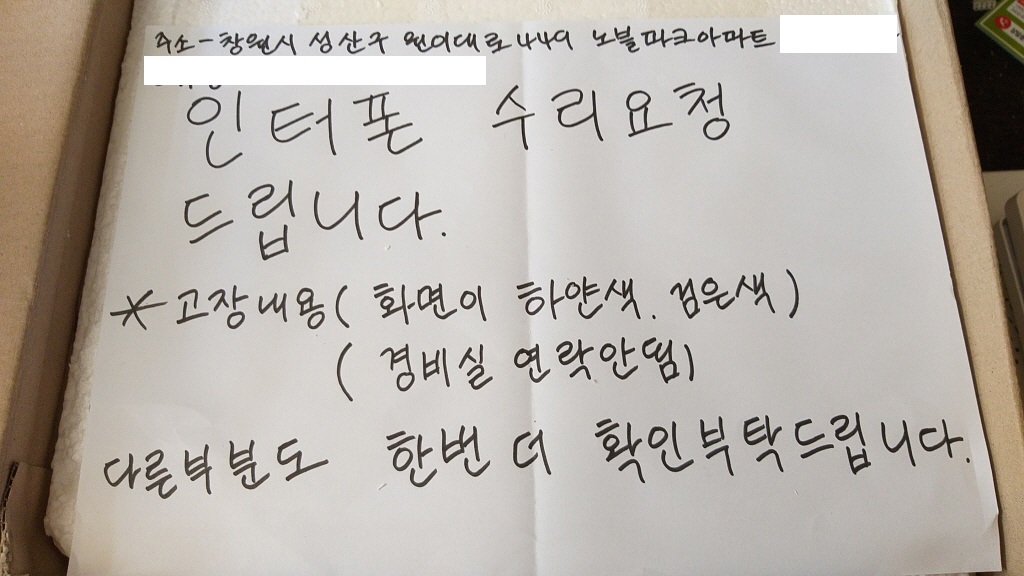 주소-창원시 성산구 원이대로 449 노블파크아파트
인터폰 수리요청
드립니다.
* 고장내용( 화면이 하얀색. 검은색)
( 경비실 연락안됨)
다른부분도 한번 더 확인부탁드립니다.